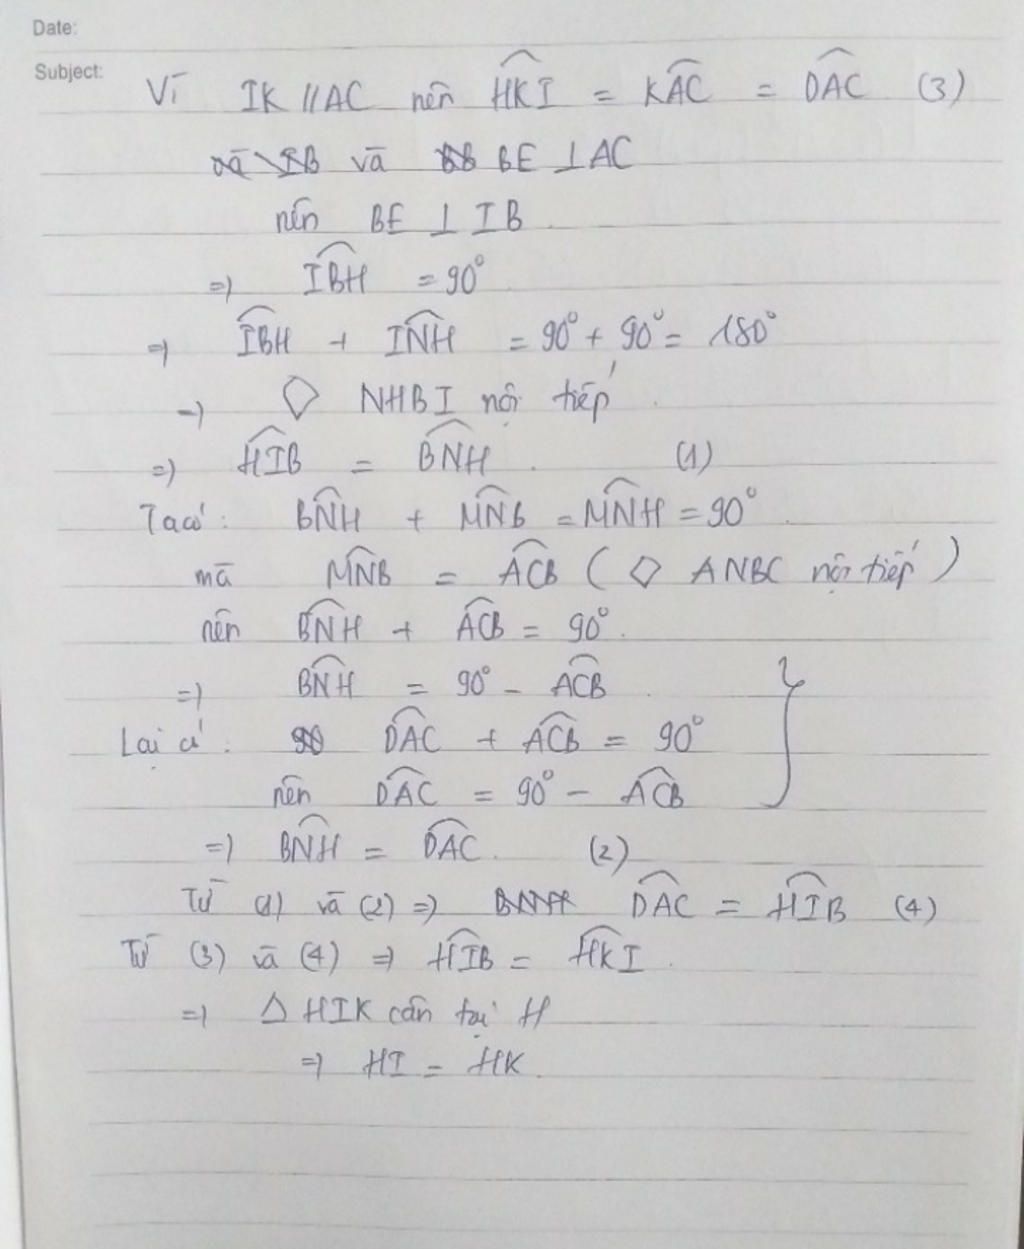 Date:
Subject:
Vì IK // AC nên \widehat{HKI} = \widehat{KAC} = \widehat{DAC} (3)
và IB và BE ⊥ AC
nên BE ⊥ IB.
=> \widehat{IBH} = 90°
=> \widehat{IBH} + \widehat{INH} = 90° + 90° = 180°
=> ◇ NHBI nội tiếp.
=> \widehat{HIB} = \widehat{BNH}. (1)
Ta có: \widehat{BNH} + \widehat{MNB} = \widehat{MNH} = 90°.
mà \widehat{MNB} = \widehat{ACB} (◇ ANBC nội tiếp)
nên \widehat{BNH} + \widehat{ACB} = 90°.
=> \widehat{BNH} = 90° - \widehat{ACB}.
Lại có: \widehat{DAC} + \widehat{ACB} = 90°
nên \widehat{DAC} = 90° - \widehat{ACB}
=> \widehat{BNH} = \widehat{DAC}. (2)
Từ (1) và (2) => \widehat{DAC} = \widehat{HIB} (4)
Từ (3) và (4) => \widehat{HIB} = \widehat{HKI}.
=> Δ HIK cân tại H
=> HI = HK.